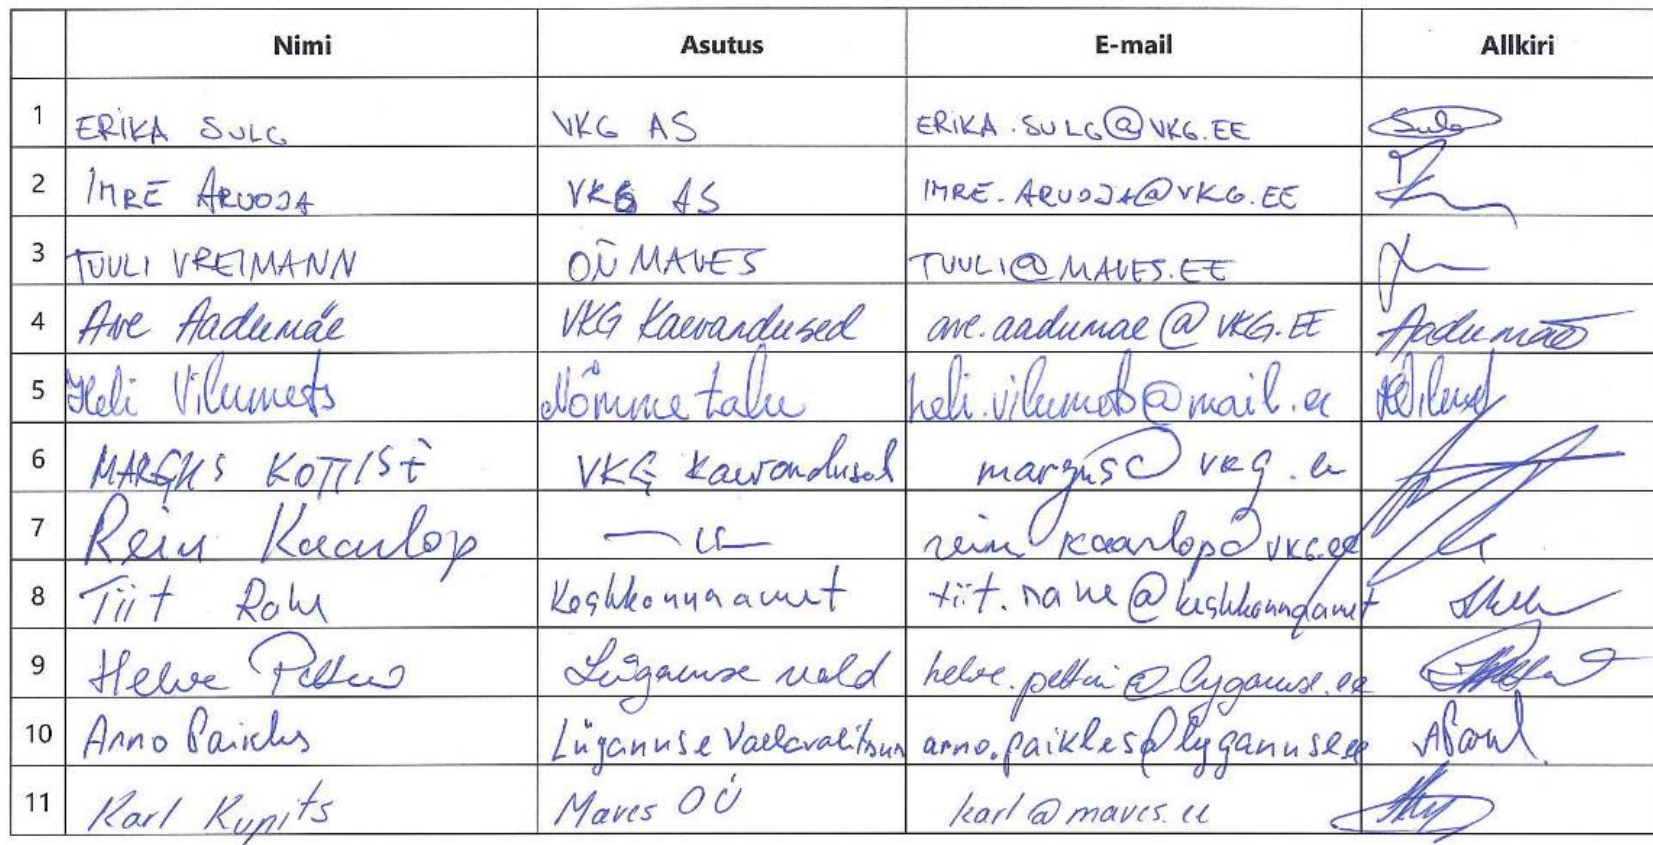 Nimi Asutus E-mail Allkiri
1 ERIKA SULG VKG AS ERIKA.SULG@VKG.EE Sulg
2 IMRE ARUOJA VKG AS IMRE.ARUOJA@VKG.EE
3 TUULI VREIMANN OÜ MAVES TUULI@MAVES.EE
4 Ave Aadumäe VKG Kaevandused ave.aadumae@VKG.EE Aadumäe
5 Heli Vilumets Nõmme talu heli.vilumets@mail.ee
6 MARGUS KOTTISE VKG Kaevandused margus@vkg.ee
7 Rein Kaarlop rein.kaarlop@vkg.ee
8 Tiit Rahe Keskkonnaamet tiit.rahe@keskkonnaamet
9 Helve Lüganuse vald
10 Arno Paikles Lüganuse Vallavalitsus arno.paikles@lyganuse.ee
11 Karl Kupits Maves OÜ karl@maves.ee